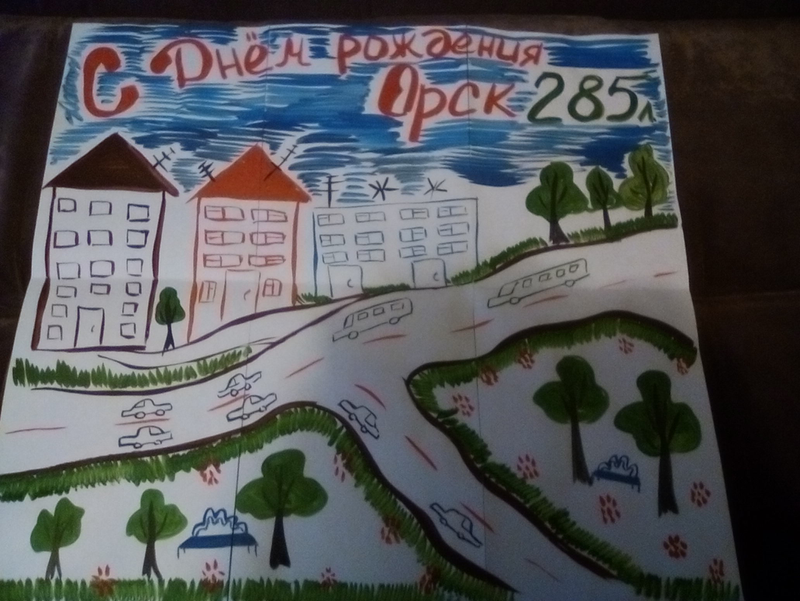 С Днём рождения
Орск 285л